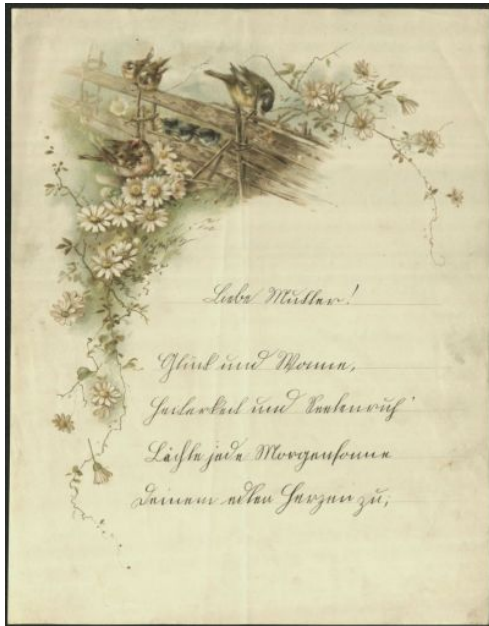 Liebe Mutter!
Glück und Wonne,
Heiterkeit und Seelenruh'
Lächle jede Morgensonne
Deinem edlen Herzen zu;